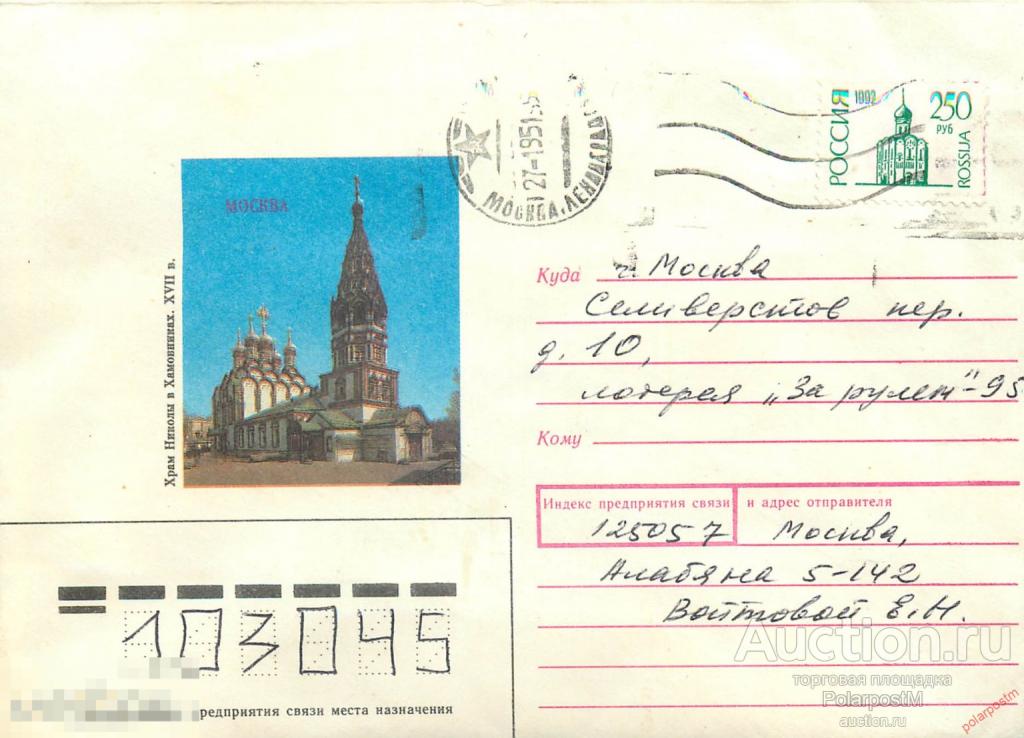 РОССИЯ 1992 250 РУБ ROSSIJA
МОСКВА
Храм Николы в Хамовниках. XVII в.
МОСКВА
Куда г. Москва
Селиверстов пер.
д. 10,
лотерея „За рулем"-95
Кому
Индекс предприятия связи и адрес отправителя
125057 Москва,
Алабяна 5-142
Войтовой Е.Н.
103045
редприятия связи места назначения
Auction.ru
торговая площадка
PolarpostM
auction.ru
polarpostm